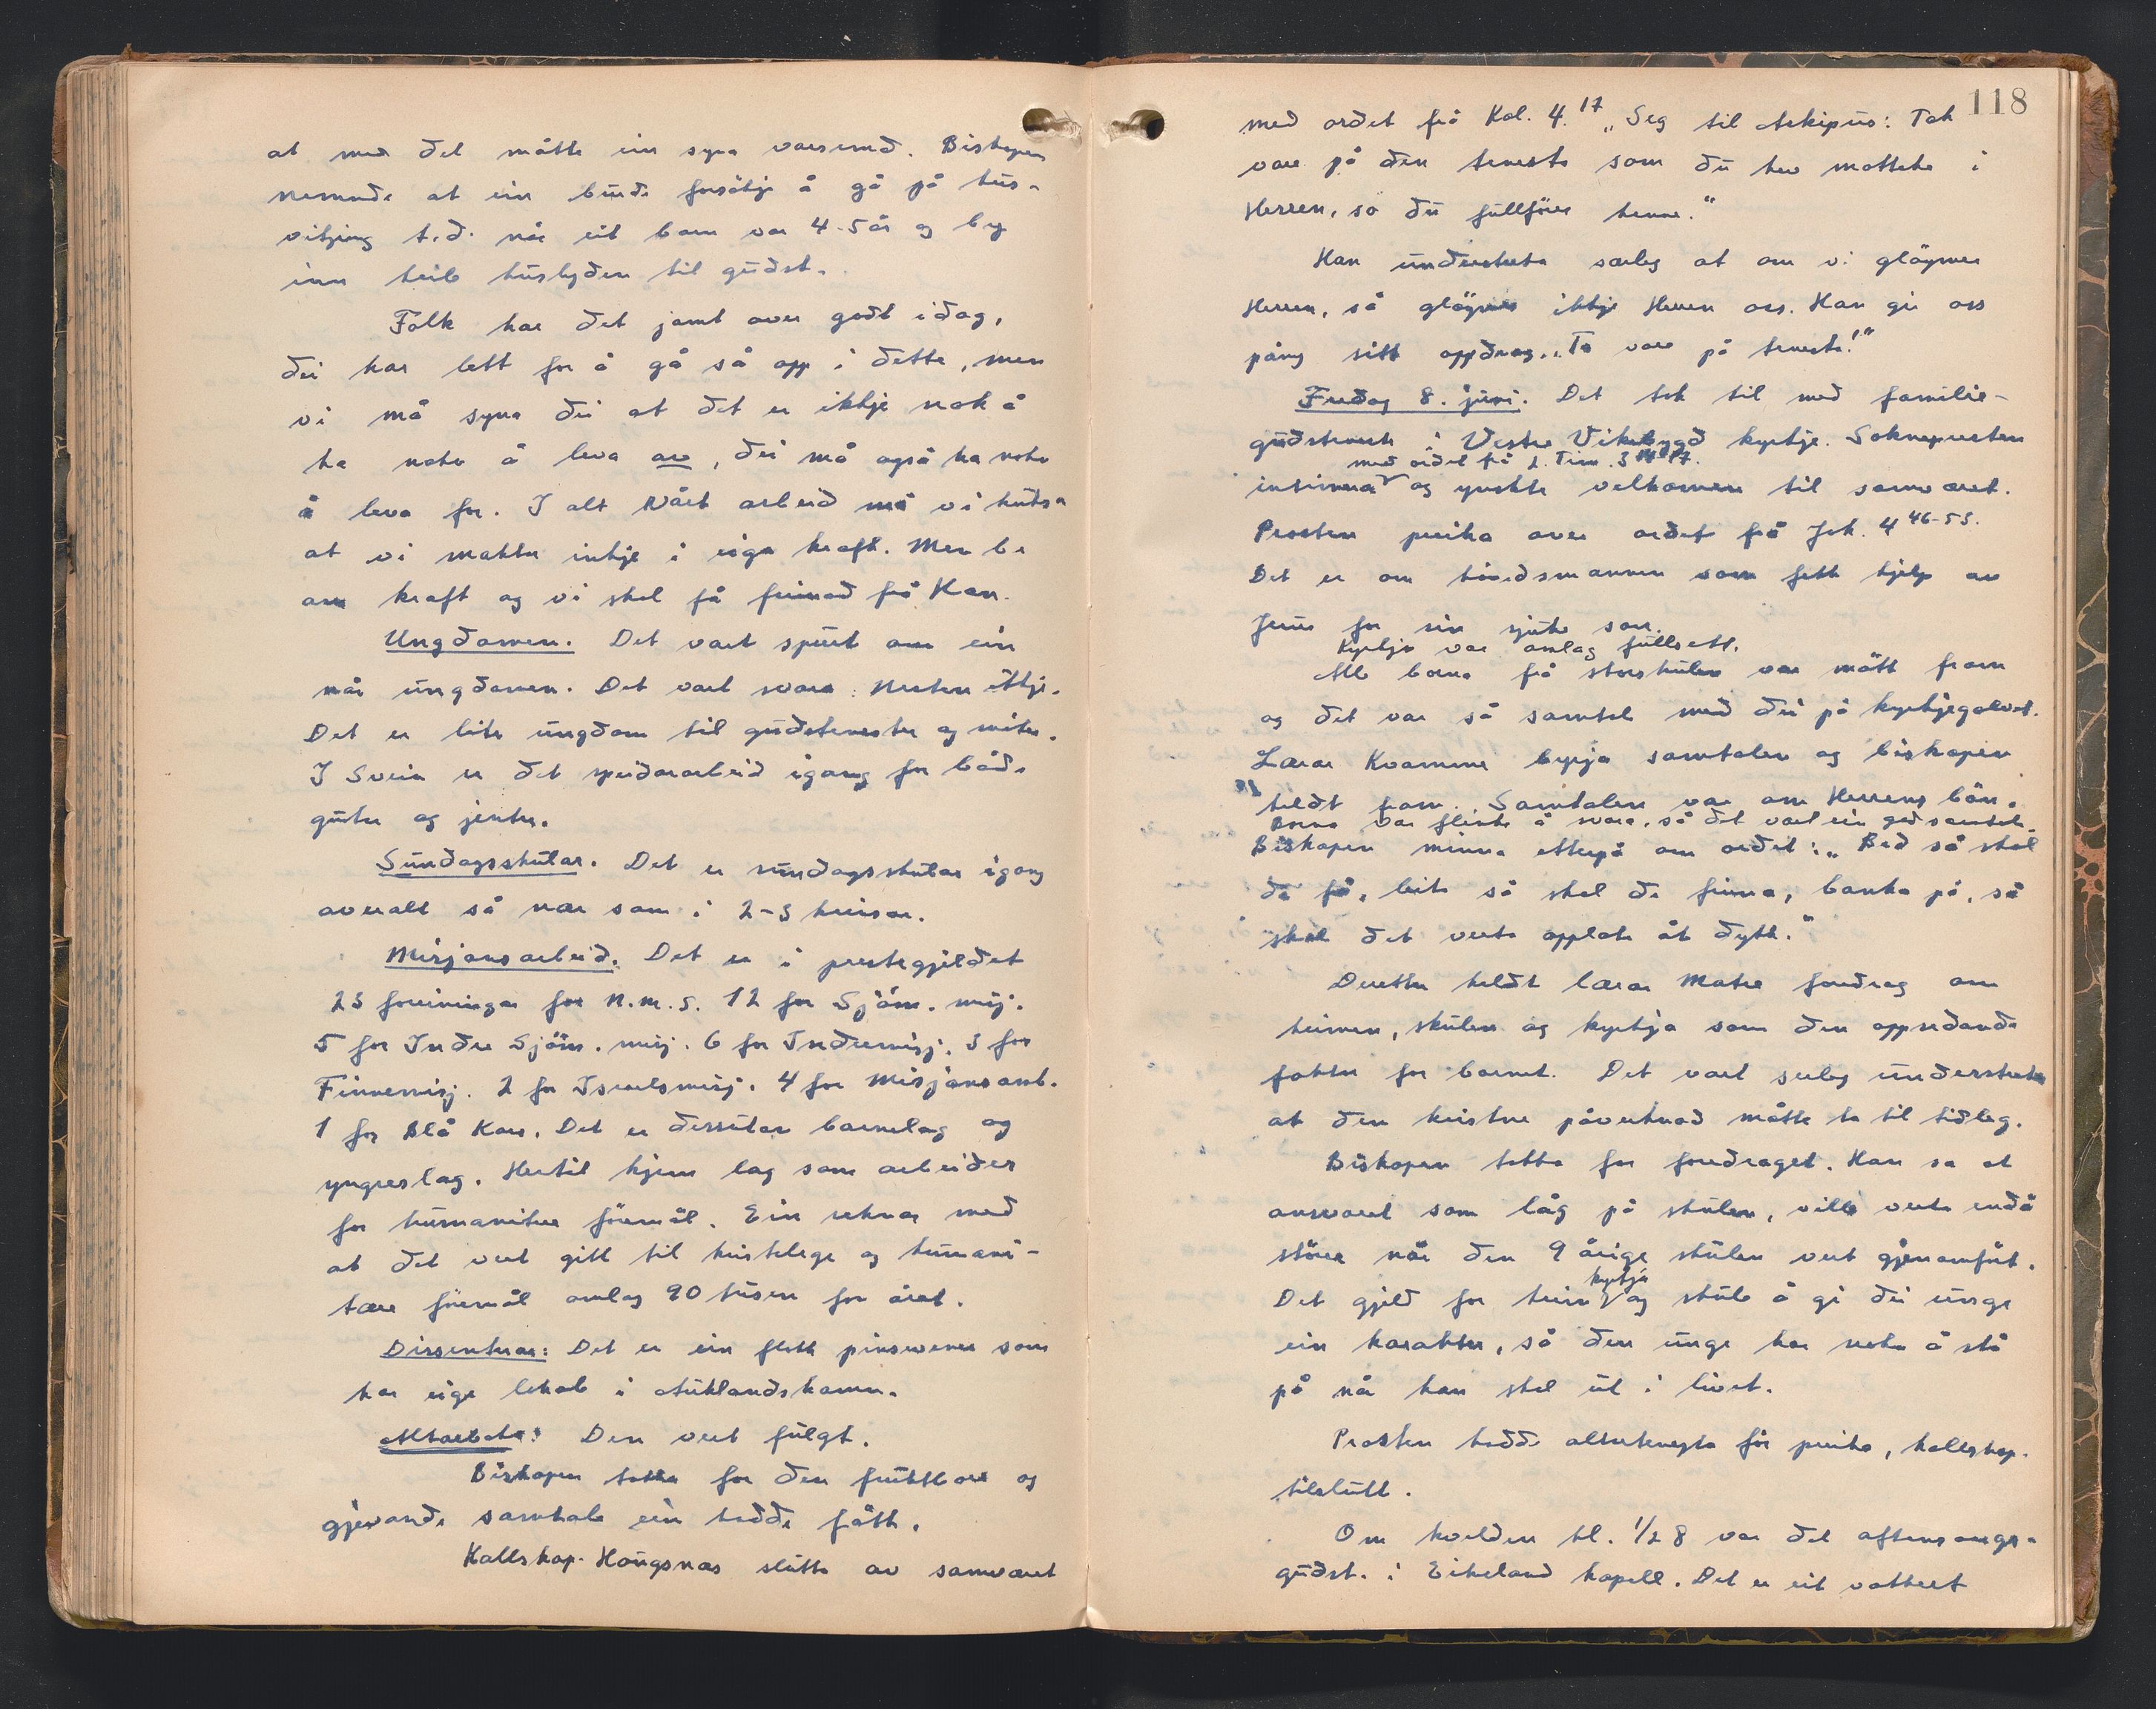 at med det måtte ein syna varsemd. Biskopen
nemnde at ein burde forsökje å gå på hus-
vitjing t.d. når eit barn var 4-5 år og by
inn heile huslyden til gudst.
Folk har det jamt over godt idag,
dei har lett for å gå så opp i dette, men
vi må syna dei at det er ikkje nok å
ha noko å leva av, dei må også ha noko
å leva for. I alt vårt arbeid må vi hugsa
at vi maktar inkje i eiga kraft. Men be
om kraft og vi skal få frimod frå Han.
Ungdomen. Det vart spurt om ein
når ungdomen. Det vart svara: Nesten ikkje.
Det er lite ungdom til gudstenester og möter.
I Svein er det speidararbeid igang for både
gutar og jenter.
Sundagsskular. Det er sundagsskular igang
overalt så nær som i 2-3 krinsar.
Misjonsarbeid. Det er i prestegjeldet
23 foreiningar for N.M.S. 12 for Sjöm. misj.
5 for Indre Sjöm. misj. 6 for Indremisj. 3 for
Finnemisj. 2 for Israelsmisj. 4 for Misjonsamb.
1 for Blå Kors. Det er dessutan barnelag og
yngreslag. Hertil kjem lag som arbeider
for humanitære föremål. Ein reknar med
at det vert gitt til kristelege og humani-
tære föremål omlag 90 tusen for året.
Dissentarar: Det er ein flokk pinsevener som
har eige lokale i Auklandshamn.
Altarboka: Den vert fulgt.
Biskopen takka for den fruktbare og
gjevande samtale ein hadde fått.
Kallskap. Haugsnæs slutta av samværet
118
med ordet frå Kol. 4.17 „Seg til Arkipus: Tak
vare på den tenesta som du hev motteke i
Herren, so du fullförer henne."
Han understreka særleg at om vi glöymer
Herren, så glöymer ikkje Herren oss. Han gir oss
påny sitt oppdrag. „Ta vare på tenesta!"
Fredag 8. juni. Det tok til med familie-
gudsteneste i Vestre Vikebygd kyrkje. Soknepresten
med ordet frå 2. Tim. 3 14-17.
intimera og ynskte velkomen til samværet.
Prosten preika over ordet frå Joh. 4 46-53.
Det er om hovdsmannen som fekk hjelp av
Jesus for sin sjuke son.
Kyrkja var omlag fullsett.
Alle borna frå storskulen var mött fram
og det var så samtal med dei på kyrkjegolvet.
Lærar Kvamme byrja samtalen og biskopen
heldt fram. Samtalen var om Herrens bön.
Borna var flinke å svara, så det vart ein god samtale.
Biskopen minna etterpå om ordet: „Bed så skal
de få, leita så skal de finna, banka på, så
skal det verta opplate åt dykk."
Deretter heldt lærar Matre foredrag om
heimen, skulen og kyrkja som den oppsedande
faktor for barnet. Det vart serleg understreka
at den kristne påverknad måtte ta til tidleg.
Biskopen takka for foredraget. Han sa at
ansvaret som låg på skulen, ville verta endå
större når den 9 årige skulen vert gjenomfört.
kyrkja
Det gjeld for heim og skule å gi dei unge
ein karakter, så den unge har noko å stå
på når han skal ut i livet.
Prosten hadde altarteneste för preika, kallskap.
tilslutt.
Om kvelden kl. 1/2 8 var det aftensangs-
gudst. i Eikeland kapell. Det er eit vakkert